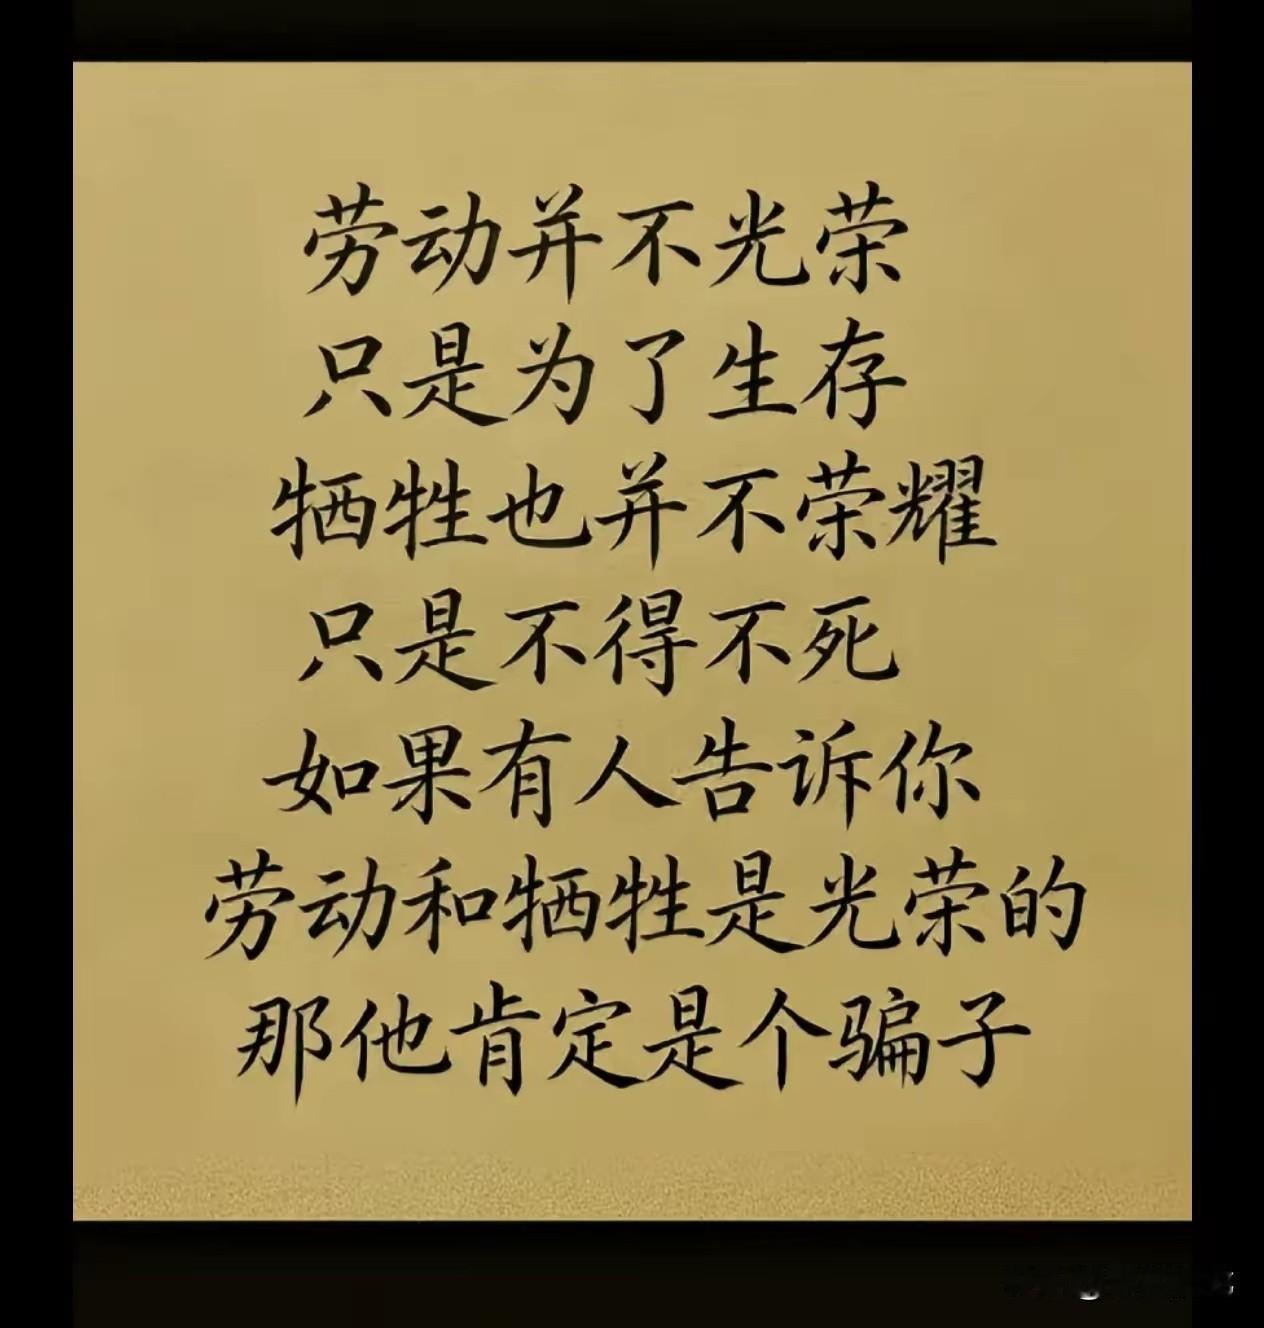 劳动并不光荣
只是为了生存
牺牲也并不荣耀
只是不得不死
如果有人告诉你
劳动和牺牲是光荣的
那他肯定是个骗子